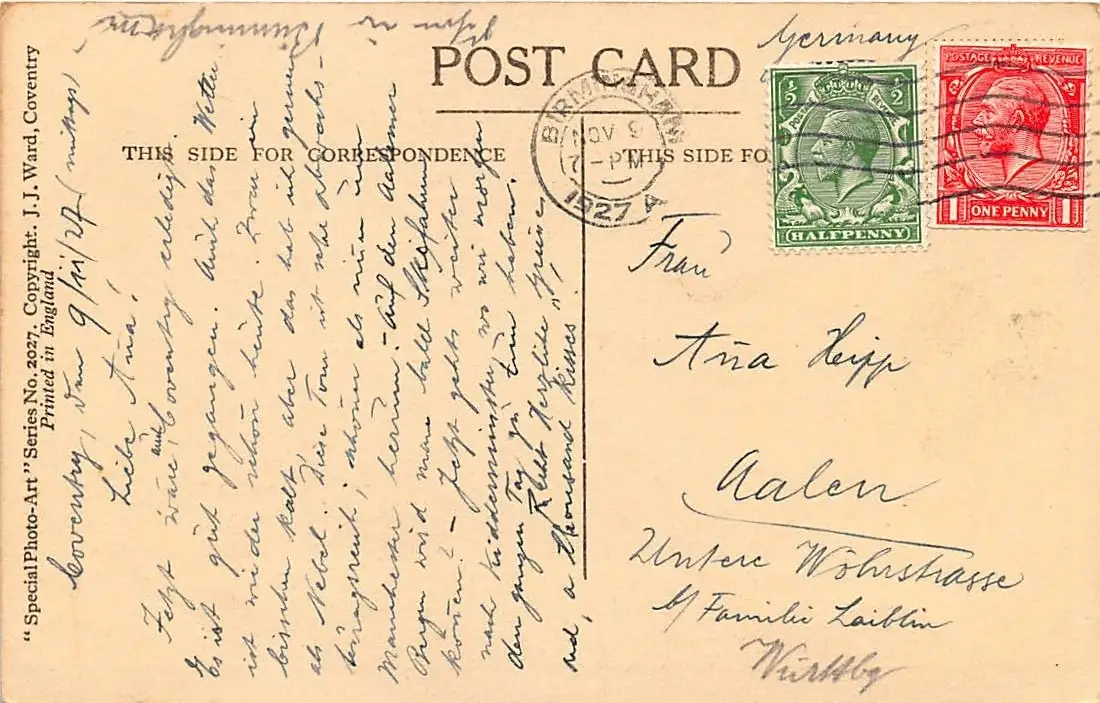 "Special Photo-Art" Series No. 2027. Copyright. J. J. Ward, Coventry
Printed in England
POST CARD
THIS SIDE FOR CORRESPONDENCE
THIS SIDE FO
Coventry, den 9/11/27 (mittags)
Liebe Aña!
Jetzt wäre auch Coventry erledigt.
Es ist gut gegangen. Auch das Wetter
ist wieder schön heute. Zwar ein
bisschen kalt, aber das hab ich gerner
als Nebel. Diese Tour ist sehr abwechs-
lungsreich; schöner als nun um
Manchester herum. - Auf den Aalener
Bergen wird man bald Skifahren
können? - Jetzt gehts weiter
nach Kidderminster wo wir morgen
den ganzen Tag zu tun haben.
Recht Herzliche Grüsse
and, a thousand kisses"!
schon in Birmingham
BIRMINGHAM
NOV 9
7 - PM
1927 A
POSTAGE REVENUE
1/2 1/2
HALFPENNY
POSTAGE REVENUE
1 ONE PENNY 1
Germany
Frau
Aña Hipp
Aalen
Untere Wöhrstrasse
b/ Familie Laiblin
Württbg